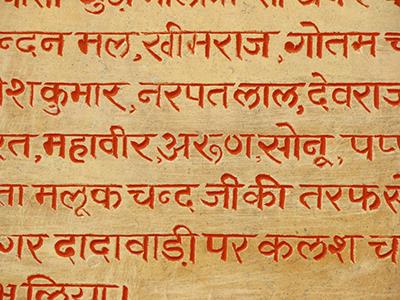 न्दन मल,खीमराज, गोतम च
शकुमार,नरपतलाल,देवराज
रत,महावीर,अरूण,सोनू, पप्
ता मलूक चन्द जी की तरफसे
गर दादावाड़ी पर कलश च
लिया।